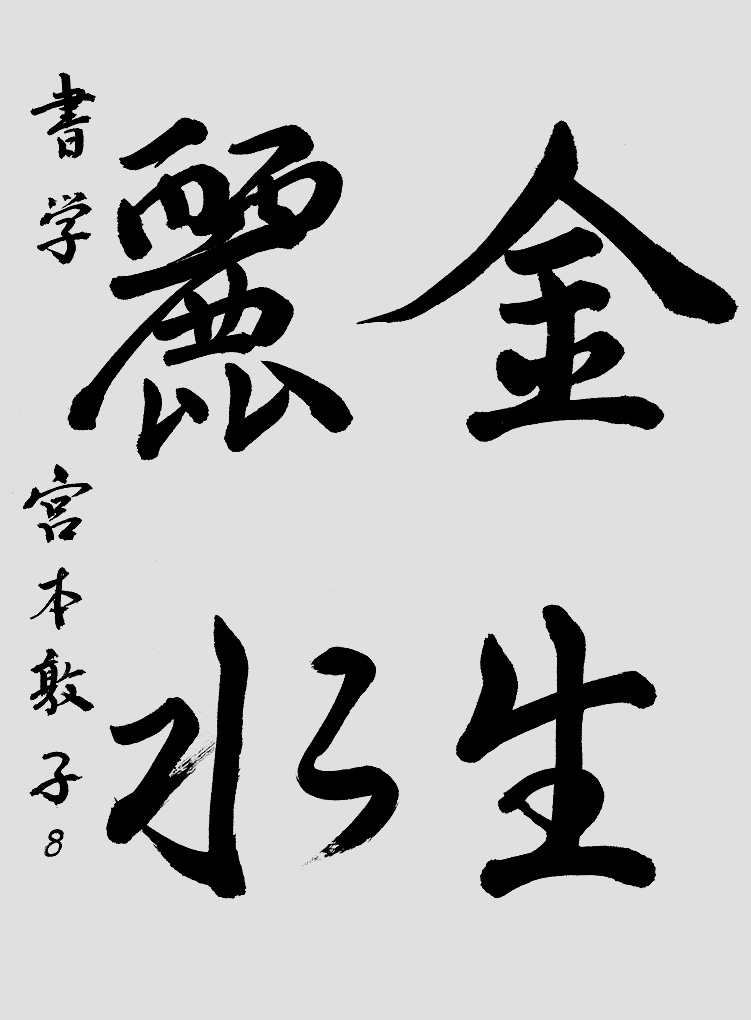 金生
麗水
書学 宮本敦子8